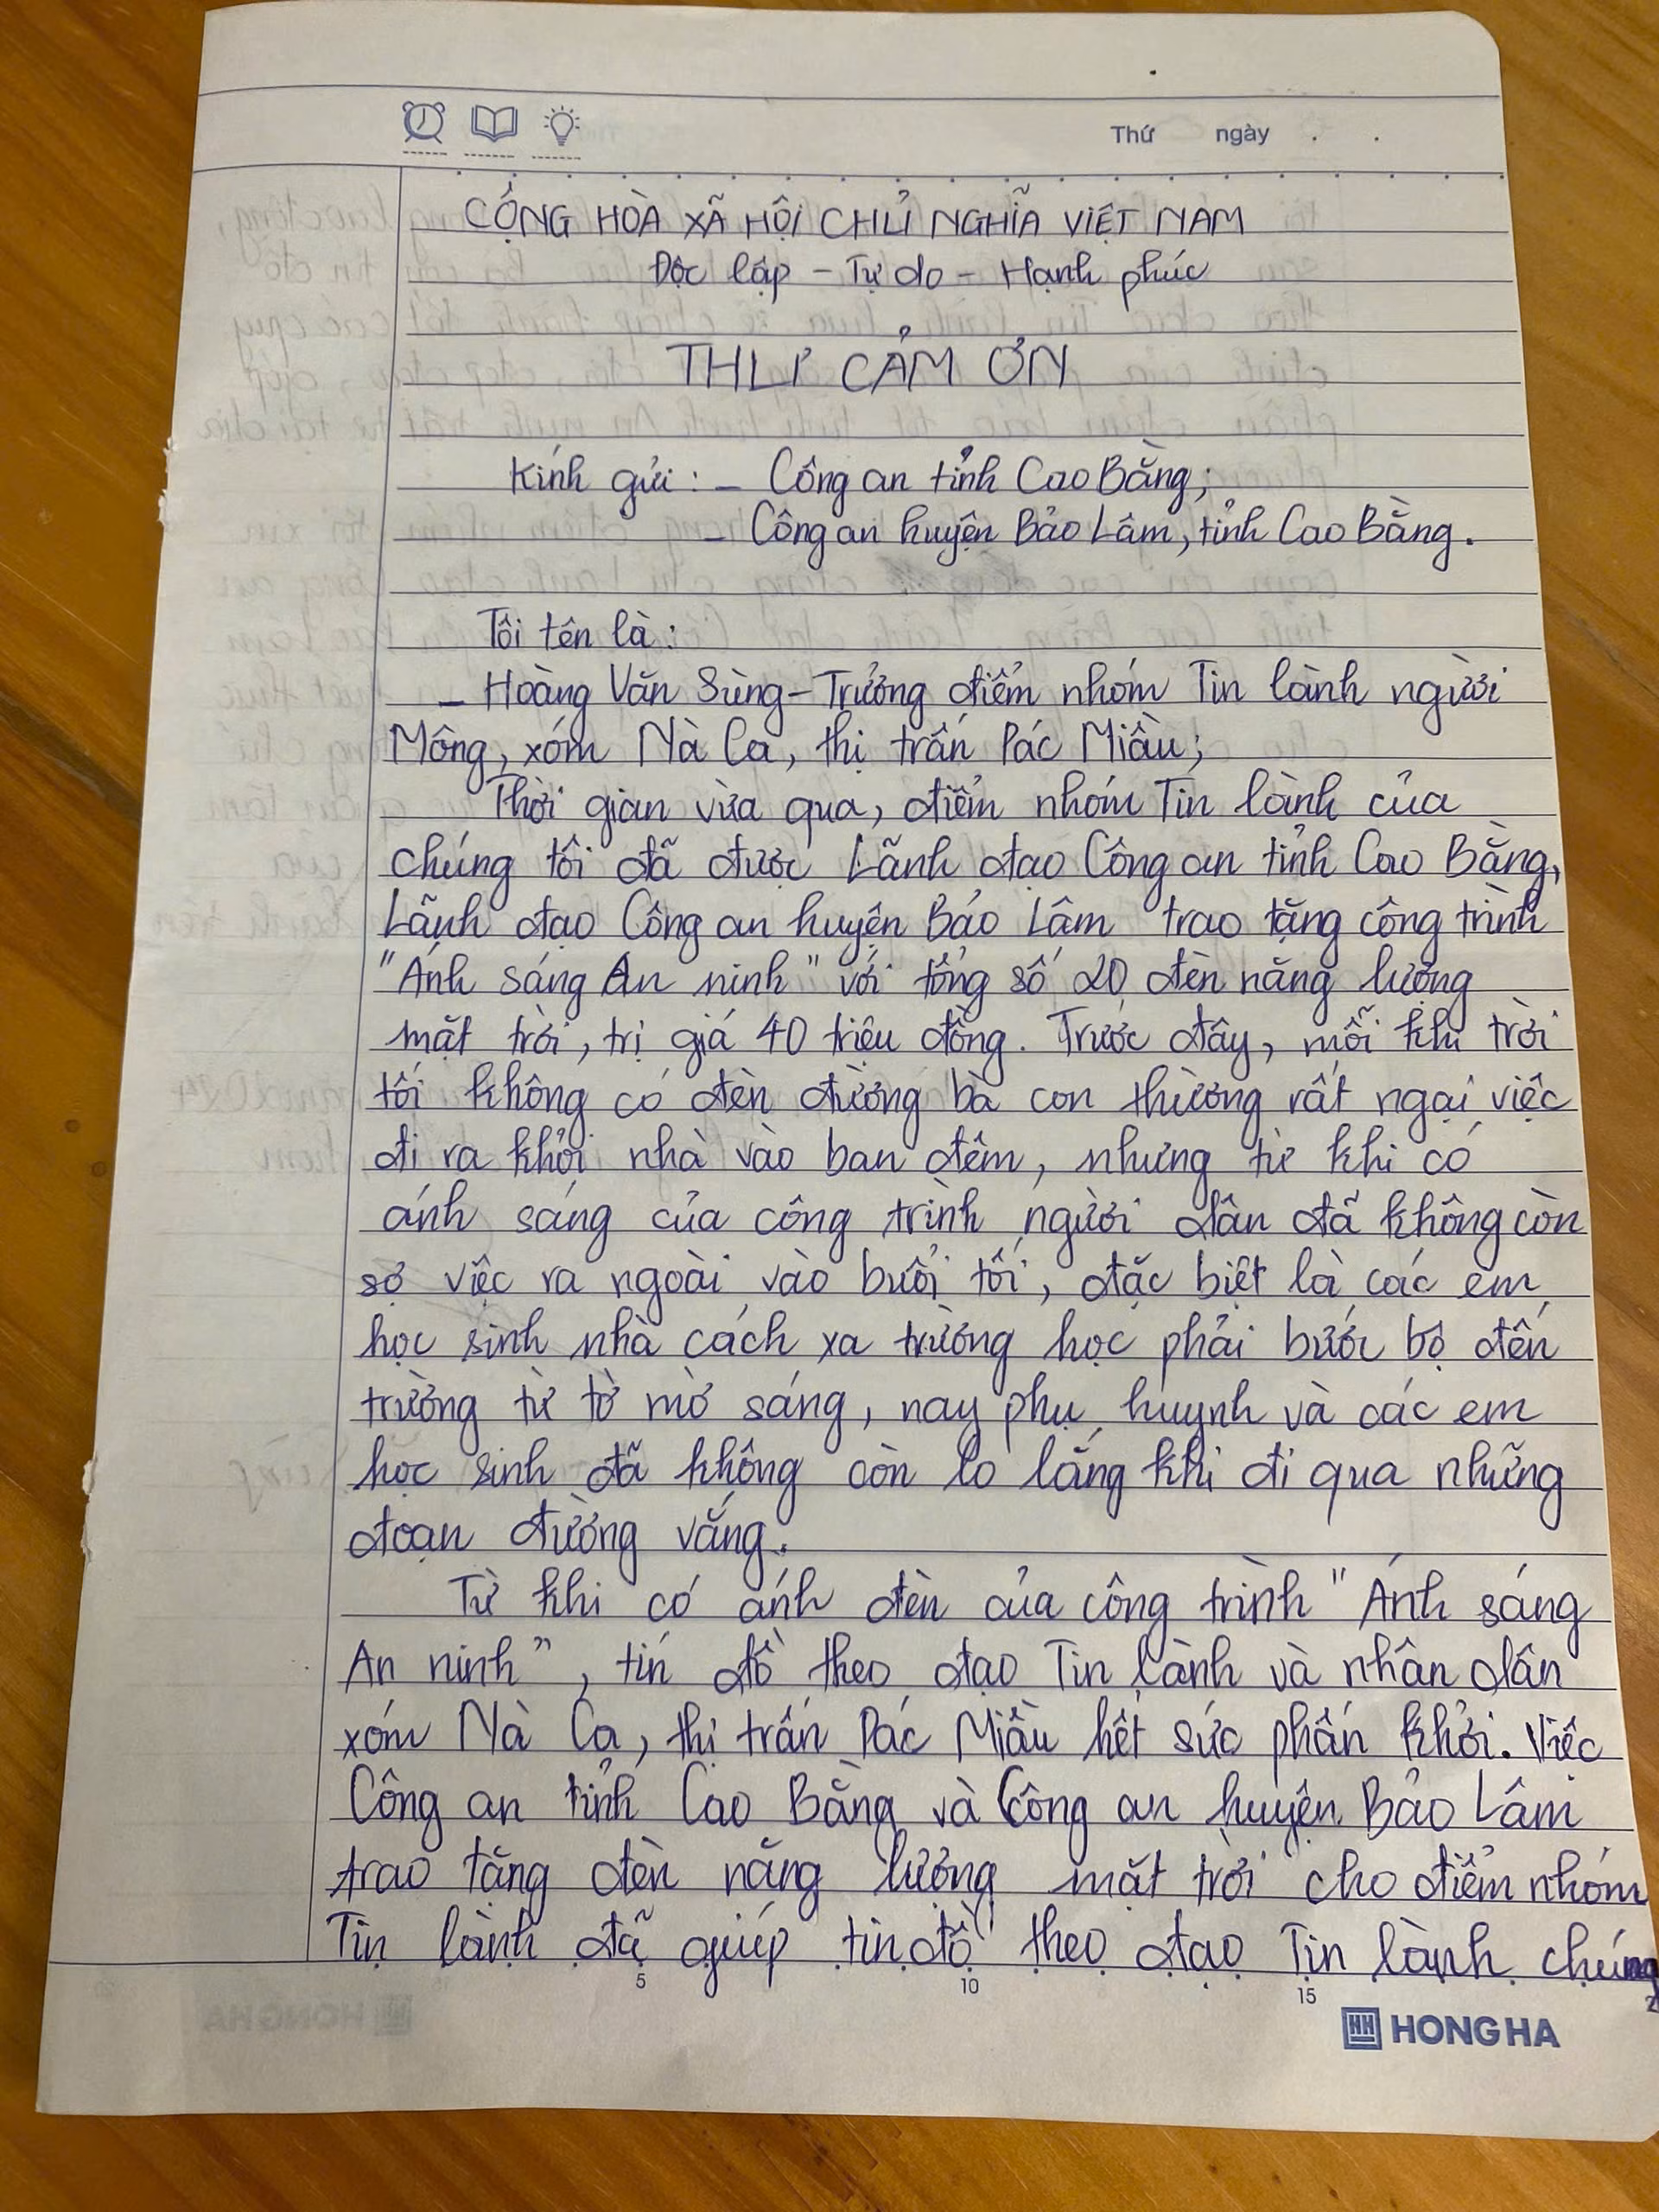 Thứ ngày
CỘNG HÒA XÃ HỘI CHỦ NGHĨA VIỆT NAM
Độc lập - Tự do - Hạnh phúc
THƯ CẢM ƠN
Kính gửi: - Công an tỉnh Cao Bằng;
- Công an huyện Bảo Lâm, tỉnh Cao Bằng.
Tôi tên là:
- Hoàng Văn Sùng - Trưởng điểm nhóm Tin lành người
Mông, xóm Nà Ca, thị trấn Pác Miầu;
Thời gian vừa qua, điểm nhóm Tin lành của
chúng tôi đã được Lãnh đạo Công an tỉnh Cao Bằng,
Lãnh đạo Công an huyện Bảo Lâm trao tặng công trình
"Ánh sáng An ninh" với tổng số 20 đèn năng lượng
mặt trời, trị giá 40 triệu đồng. Trước đây, mỗi khi trời
tối không có đèn đường bà con thường rất ngại việc
đi ra khỏi nhà vào ban đêm, nhưng từ khi có
ánh sáng của công trình người dân đã không còn
sợ việc ra ngoài vào buổi tối, đặc biệt là các em
học sinh nhà cách xa trường học phải bước bộ đến
trường từ tờ mờ sáng, nay phụ huynh và các em
học sinh đã không còn lo lắng khi đi qua những
đoạn đường vắng.
Từ khi có ánh đèn của công trình "Ánh sáng
An ninh", tín đồ theo đạo Tin lành và nhân dân
xóm Nà Ca, thị trấn Pác Miầu hết sức phấn khởi. Việc
Công an tỉnh Cao Bằng và Công an huyện Bảo Lâm
trao tặng đèn năng lượng mặt trời cho điểm nhóm
Tin lành đã giúp tín đồ theo đạo Tin lành chúng
5 10 15 2
HONG HA